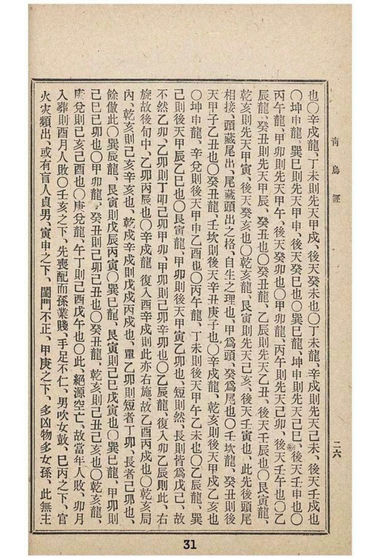 靑烏經
二六
也〇辛戌龍、丁未則先天甲戌、後天癸未也〇丁未龍、辛戌則先天己未、後天壬戌也
〇坤申龍、巽巳則先天甲申、後天癸巳也〇巽巳龍、坤申則先天己巳、後天壬申也〇
丙午龍、甲卯則先天甲午、後天癸卯也〇甲卯龍、丙午則先天己卯、後天壬午也〇乙
辰龍、癸丑則先天甲辰、癸丑也〇癸丑龍、乙辰則先天乙丑、後天壬辰也〇艮寅龍、
乾亥則先天甲寅、後天癸亥也〇乾亥龍、艮寅則先天己亥、後天壬寅也、此先後頭尾
相接、頭藏尾出、尾藏頭出之格、自生之理也、甲爲頭、癸爲尾也〇壬坎龍、癸丑則後
天甲子乙丑也〇癸丑龍、壬坎則後天辛丑庚子也〇辛戌龍、乾亥則後天甲戌乙亥也
〇坤申龍、辛兌則後天甲申乙酉也〇丙午龍、丁未則後天甲午乙未也〇乙辰龍、巽
己則後天甲辰乙巳也〇甲卯龍、甲卯則後天甲寅乙卯也、短則然、長則皆爲戊己、故
不然乙卯、乙卯則丁卯己卯甲卯、甲卯則己卯辛卯也〇乙辰龍、復入卯乙辰則此、右
旋故後旬中、乙卯丙辰也〇辛戌龍、復入酉辛戌則此亦右旋故乙酉丙戌也〇乾亥局
內、乾亥則己亥辛亥也、乾戌則戊戌丙戌也、單乙卯則短者丁卯、長者己卯也、
餘倣此〇巽辰龍、艮寅則戊辰丙寅〇巽巳龍、艮寅則己巳戊寅也〇巽巳龍、甲卯則
己巳己卯也〇甲卯龍、癸丑則己卯己丑也〇癸丑龍、乾亥則己丑己亥也〇乾亥龍、
庚兌則己亥己酉也〇庚兌龍、午丁則己酉戊午也〇此、絕源空亡、故當年人敗、卯月
入葬則酉月人敗〇壬亥之下、先喪配而孫業賤、手足不仁、男吹女鼓、巳丙之下、官
火灾頻出、或有盲人貞男、寅申之下、閨門不正、甲庚之下、多凶物多女孫、此無主
31